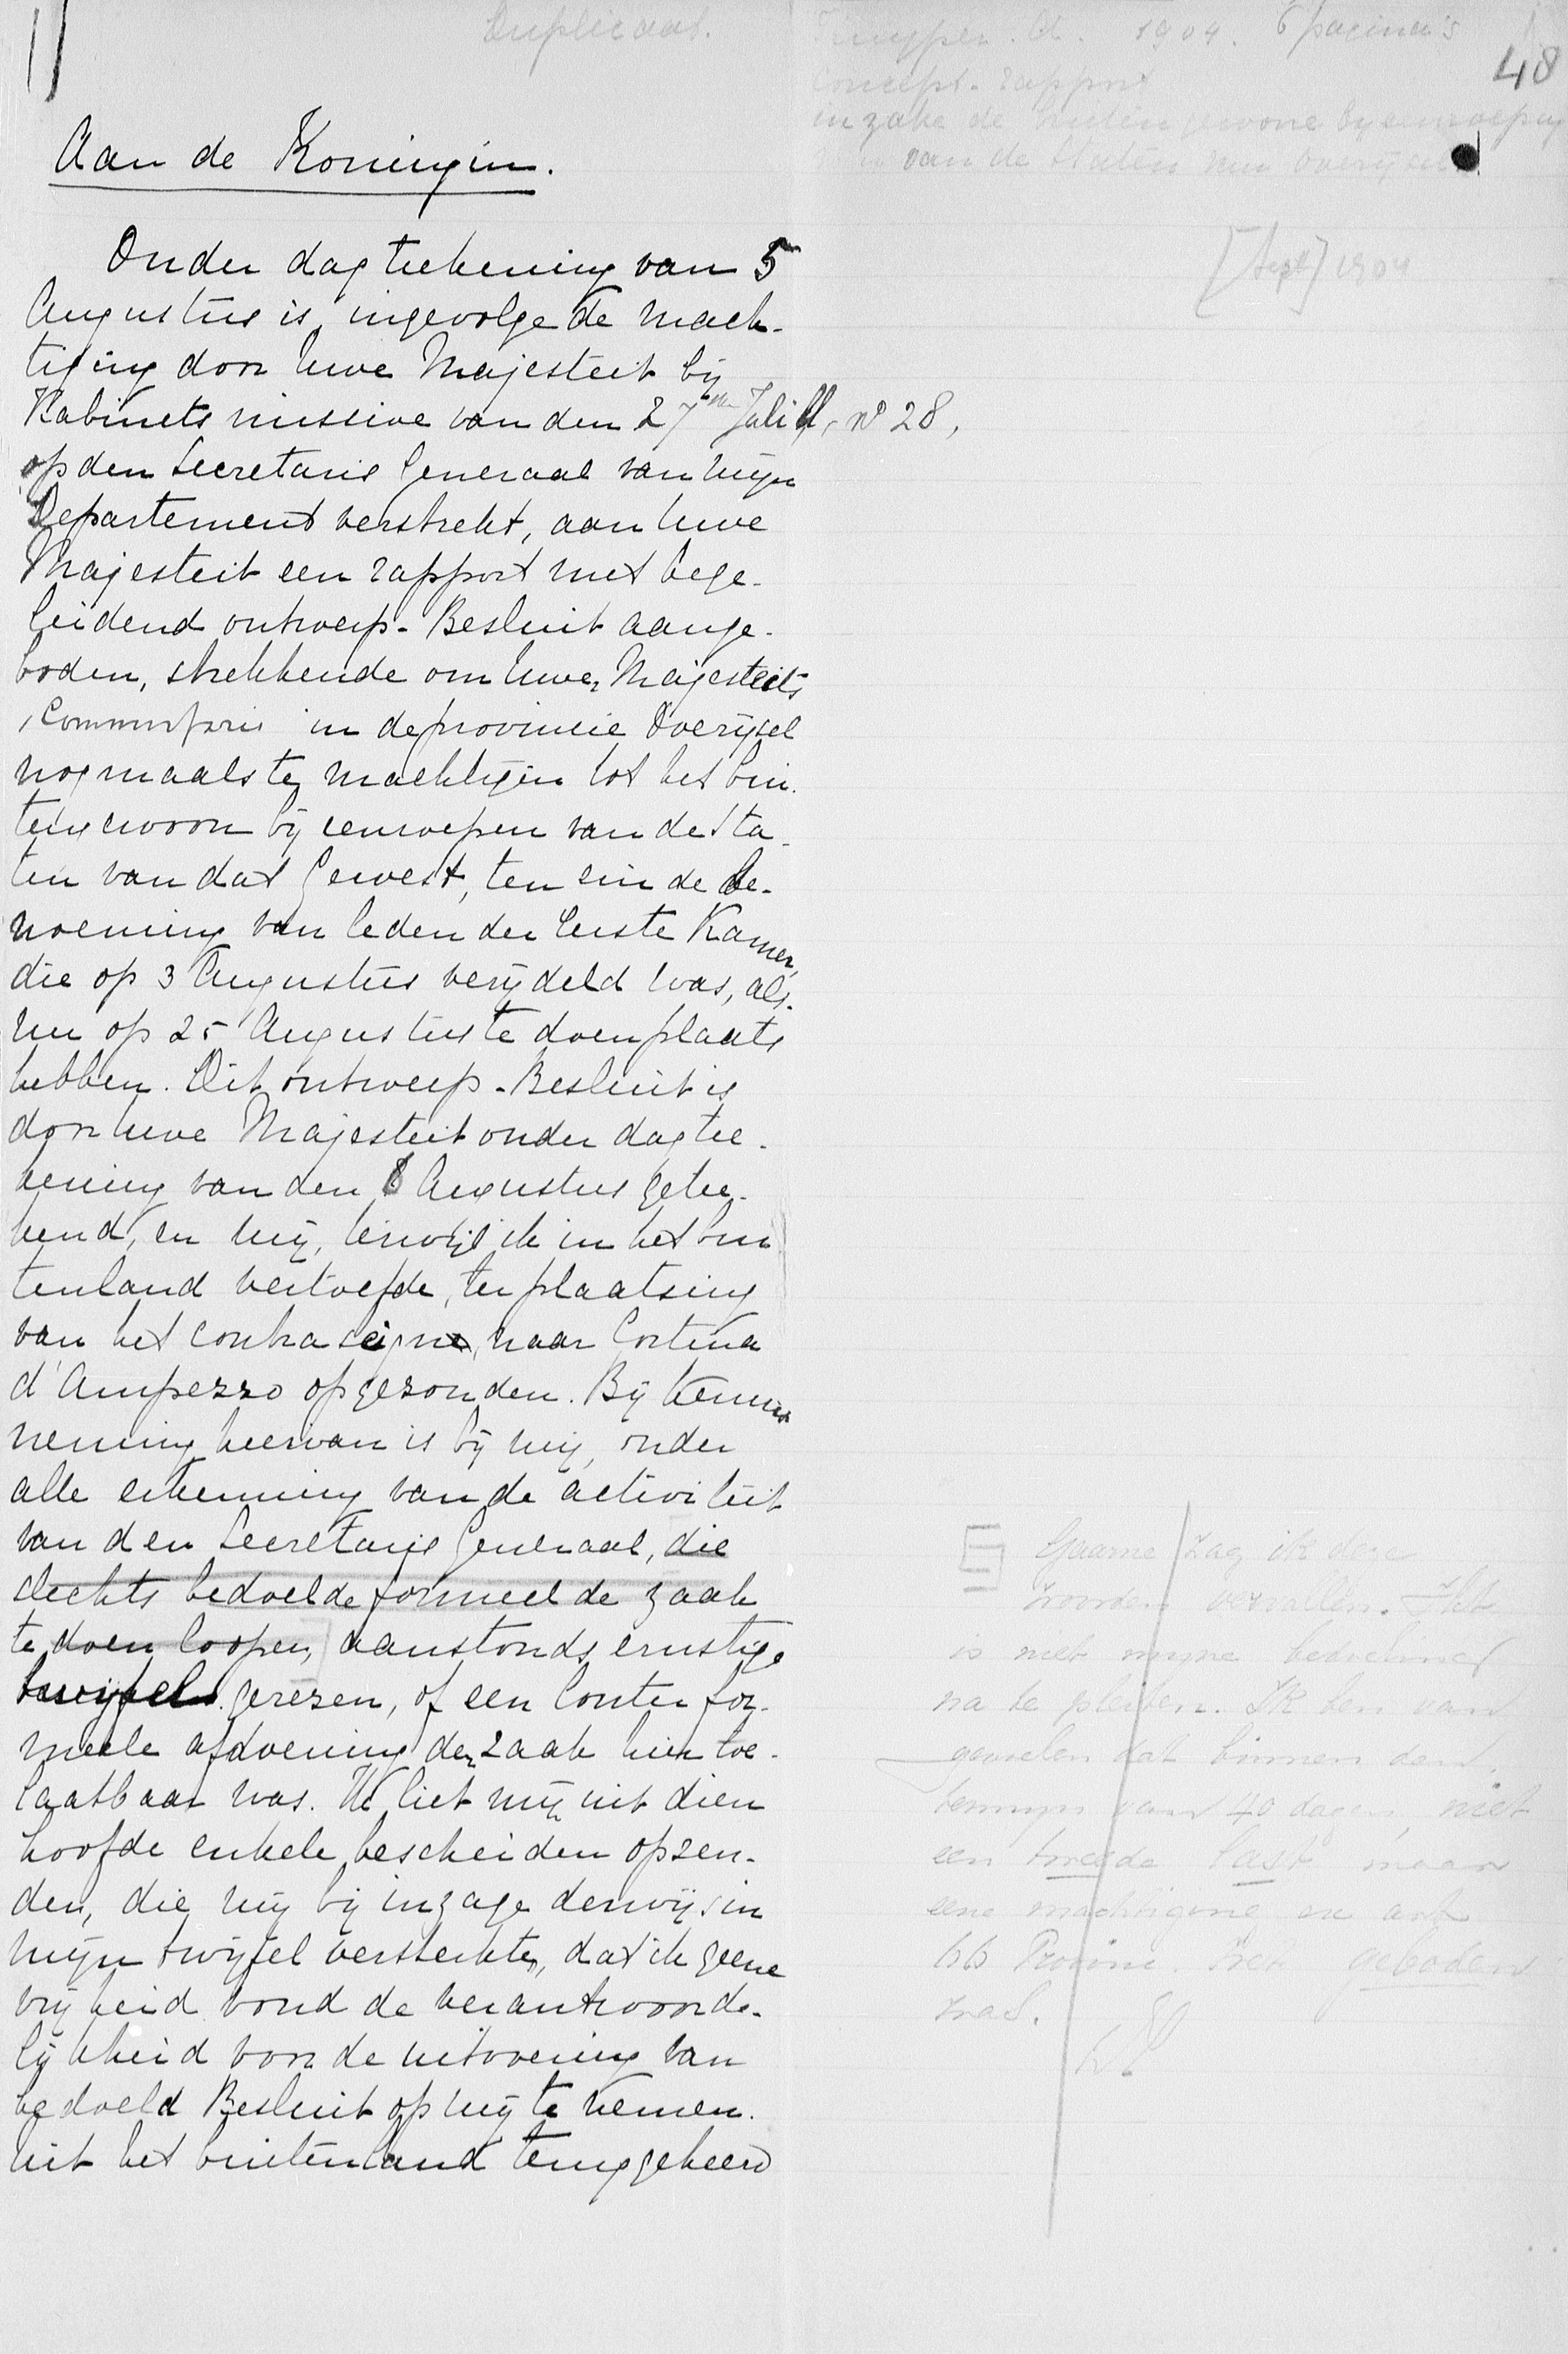 Duplicaat.
Kuyper. A. 1904. 6 pagina's
48
concept-rapport
inzake de buitengewone bijeenroeping
van de Staten van Overijsel
[Sept] 1904
Aan de Koningin.
Onder dagteekening van 5
Augustus is, ingevolge de mach-
tiging door Uwe Majesteit bij
Kabinets missive van den 27sten Juli ll, no 28,
op den Secretaris Generaal van mijn
Departement verstrekt, aan Uwe
Majesteit een rapport met bege-
leidend ontwerp-Besluit aange-
boden, strekkende om Uwer Majesteits
Commissaris in de provincie Overijsel
nogmaals te machtigen tot het bui-
tengewoon bijeenroepen van de Sta-
ten van dat Gewest, ten einde de be-
noeming van leden der Eerste Kamer,
die op 3 Augustus verijdeld was, als-
nu op 25 Augustus te doen plaats
hebben. Dit ontwerp-Besluit is
door Uwe Majesteit onder dagtee-
kening van den 8 Augustus getee-
kend, en mij, terwijl ik in het bui
tenland vertoefde, ter plaatsing
van het contraseign, naar Cortina
d'Ampezzo opgezonden. Bij kennis
neming hiervan is bij mij, onder
alle erkenning van de activiteit
van den Secretaris Generaal, die
slechts bedoelde formeel de zaak
te doen loopen, aanstonds ernstige
twijfel gerezen, of een louter for-
meele afdoening der zaak hier toe-
laatbaar was. Ik liet mij uit dien
hoofde enkele bescheiden opzen-
den, die mij bij inzage derwijs in
mijn twijfel versterkten, dat ik geene
vrijheid vond de verantwoorde-
lijkheid voor de uitvoering van
bedoeld Besluit op mij te nemen.
Uit het buitenland teruggekeerd
Gaarne zag ik deze
woorden vervallen. Het
is niet mijne bedoeling
na te pleiten. Ik ben van
gevoelen dat binnen den
termijn van 40 dagen, niet
een tweede last maar
eene machtiging ex art
66 Provinc. Wet geboden
was.